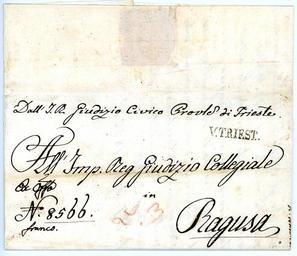 Dall' I. R. Giudizio Civico Provle di Trieste.
V. TRIEST.
All' Imp. Reg Giudizio Collegiale
Ex Offo
in
No. 8566.
franco.
Ragusa